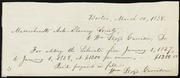 Boston, March 10, 1858.
Massachusetts Anti-Slavery Society,
To Wm. Lloyd Garrison, Dr.
For editing the Liberator from January 1, 1857,
to January 1, 1858,
Received payment in full,
Wm. Lloyd Garrison.